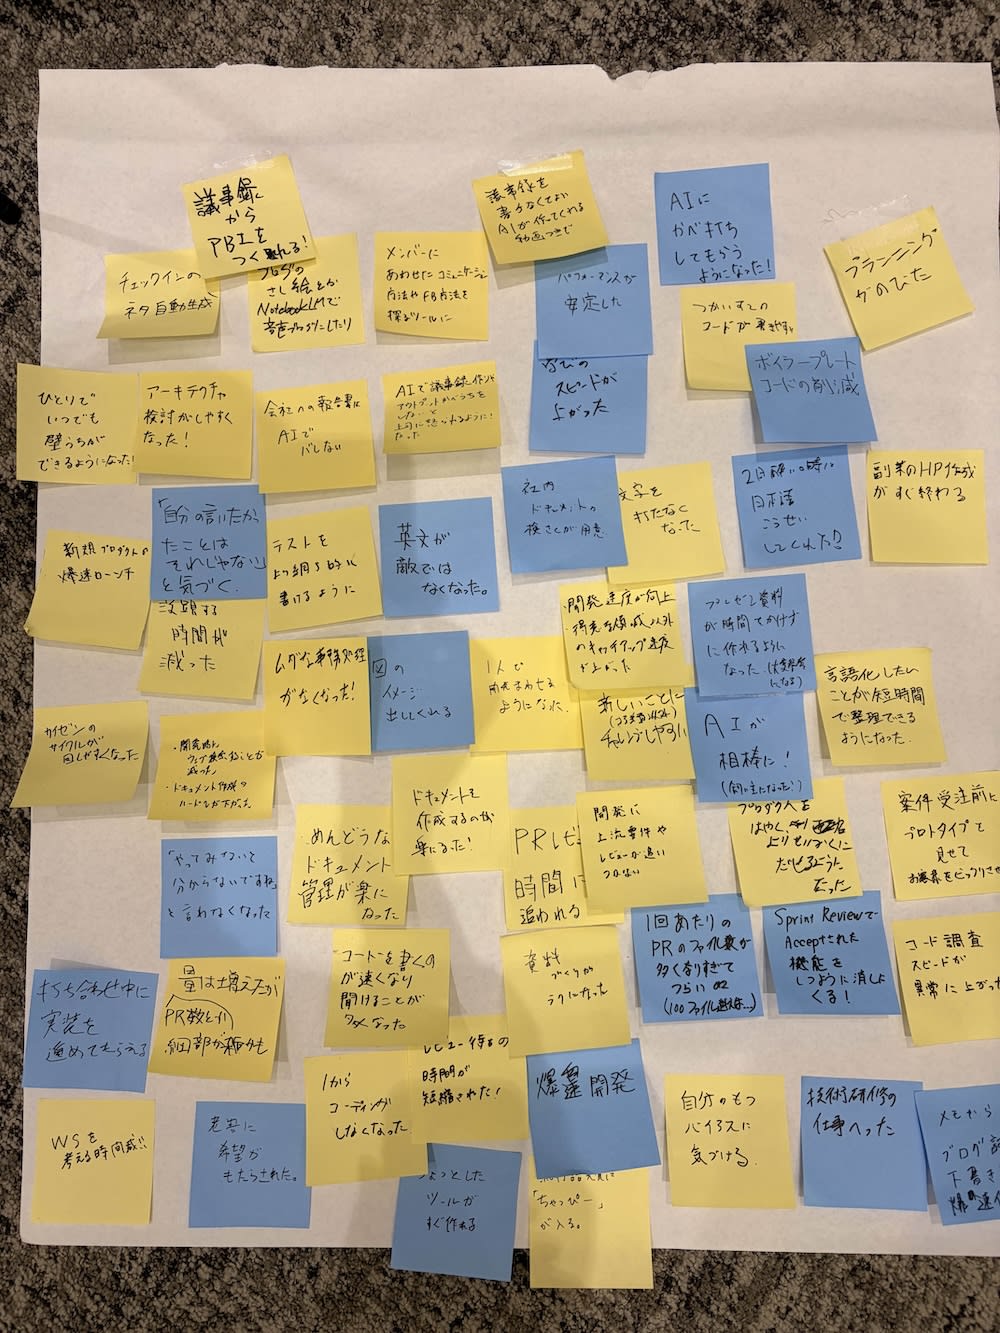 議事録
から
PBIを
つくれる!
議事録を
書かなくてよい
AIが作ってくれる
動画つきで
AIに
かべ打ち
してもらう
ようになった!
プランニング
がのびた
チェックインの
ネタ自動生成
ブログの
さし絵とか
NotebookLMで
音声
にしたり
メンバーに
あわせたコミュニケーション
方法やFB方法を
探るツールに
パフォーマンスが
安定した
つかいすての
コードが書きやすい
ボイラープレート
コードの削減
ひとりで
いつでも
壁うちが
できるようになった!
アーキテクチャ
検討がしやすく
なった!
会社への報告書は
AIで
バレない
AIで議事録作って
アウトプットが
しないと
上司に怒られるように!
なった
学びの
スピードが
上がった
社内
ドキュメントの
検さくが用意
文字を
打たなく
なった
2日酔いの時に
日本語
こうせい
してくれた!
副業のHP作成
がすぐ終わる
新規プロダクトの
爆速ローンチ
「自分の言いたかっ
たことは
それじゃない」
と気づく。
テストを
より細部的に
書けるように
英文が
敵では
なくなった。
没頭する
時間が
減った
ムダな事務処理
がなくなった!
図の
イメージ
出してくれる
1人で
ようになった
・開発速度が向上
・得意な領域以外
のキャッチアップ速度
が上がった
プレゼン資料
が時間をかけず
に作れるように
なった
新しいことに
チャレンジしやすい
AIが
相棒に!
(飼い主になった!)
言語化したい
ことが短時間
で整理できる
ようになった。
カイゼンの
サイクルが
回しやすくなった
・開発時に
ウェブ検索することが
減った
・ドキュメント作成の
ハードルが下がった
めんどうな
ドキュメント
管理が楽に
なった
ドキュメントを
作成するのが
楽になった!
PRレビ
時間に
追われる
開発に
上流要件や
レビューが追い
つかない
プロダクトを
はやく、
よりせいかくに
だせるように
なった
案件受注前に
プロトタイプを
見せて
お客様をビックリさせ
「やってみないと
分からないですね」
と言わなくなった
1回あたりの
PRのファイル数が
多くなりすぎて
つらい
(100ファイル越え…)
Sprint Reviewで
Acceptされた
機能を
しつように消しに
くる!
コード調査
スピードが
異常に上がった
打ち合わせ中に
実装を
進めてもらえる
量は増えたが
PR数とか
細部が
「コード」を書くの
が速くなり
聞けることが
多くなった
資料
づくりが
ラクになった
レビュー待ちの
時間が
短縮された!
爆量開発
1から
コーディング
しなくなった
WSを
考える時間減!!
老害に
希望が
もたらされた。
ちょっとした
ツールが
すぐ作れる
「ちゃっぴー」
が入る。
自分のもつ
バイアスに
気づける。
技術研修の
仕事へった
メモから
ブログ記
下書き
爆速